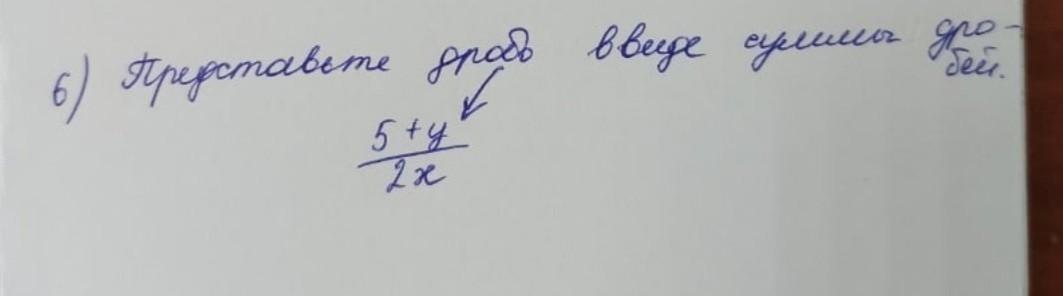 6) Представьте дробь в виде суммы дро-
бей.
5 + y
2x